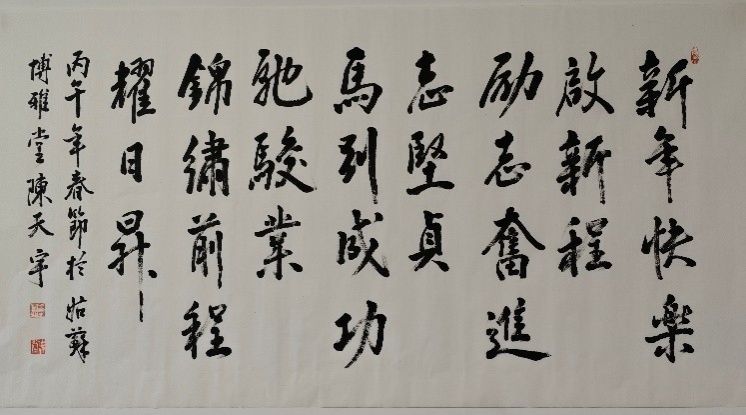 新年快樂
啟新程
励志奮進
志堅貞
馬到成功
馳駿業
錦繡前程
耀日昇
丙午年春節於姑蘇
博雅堂陳天宇